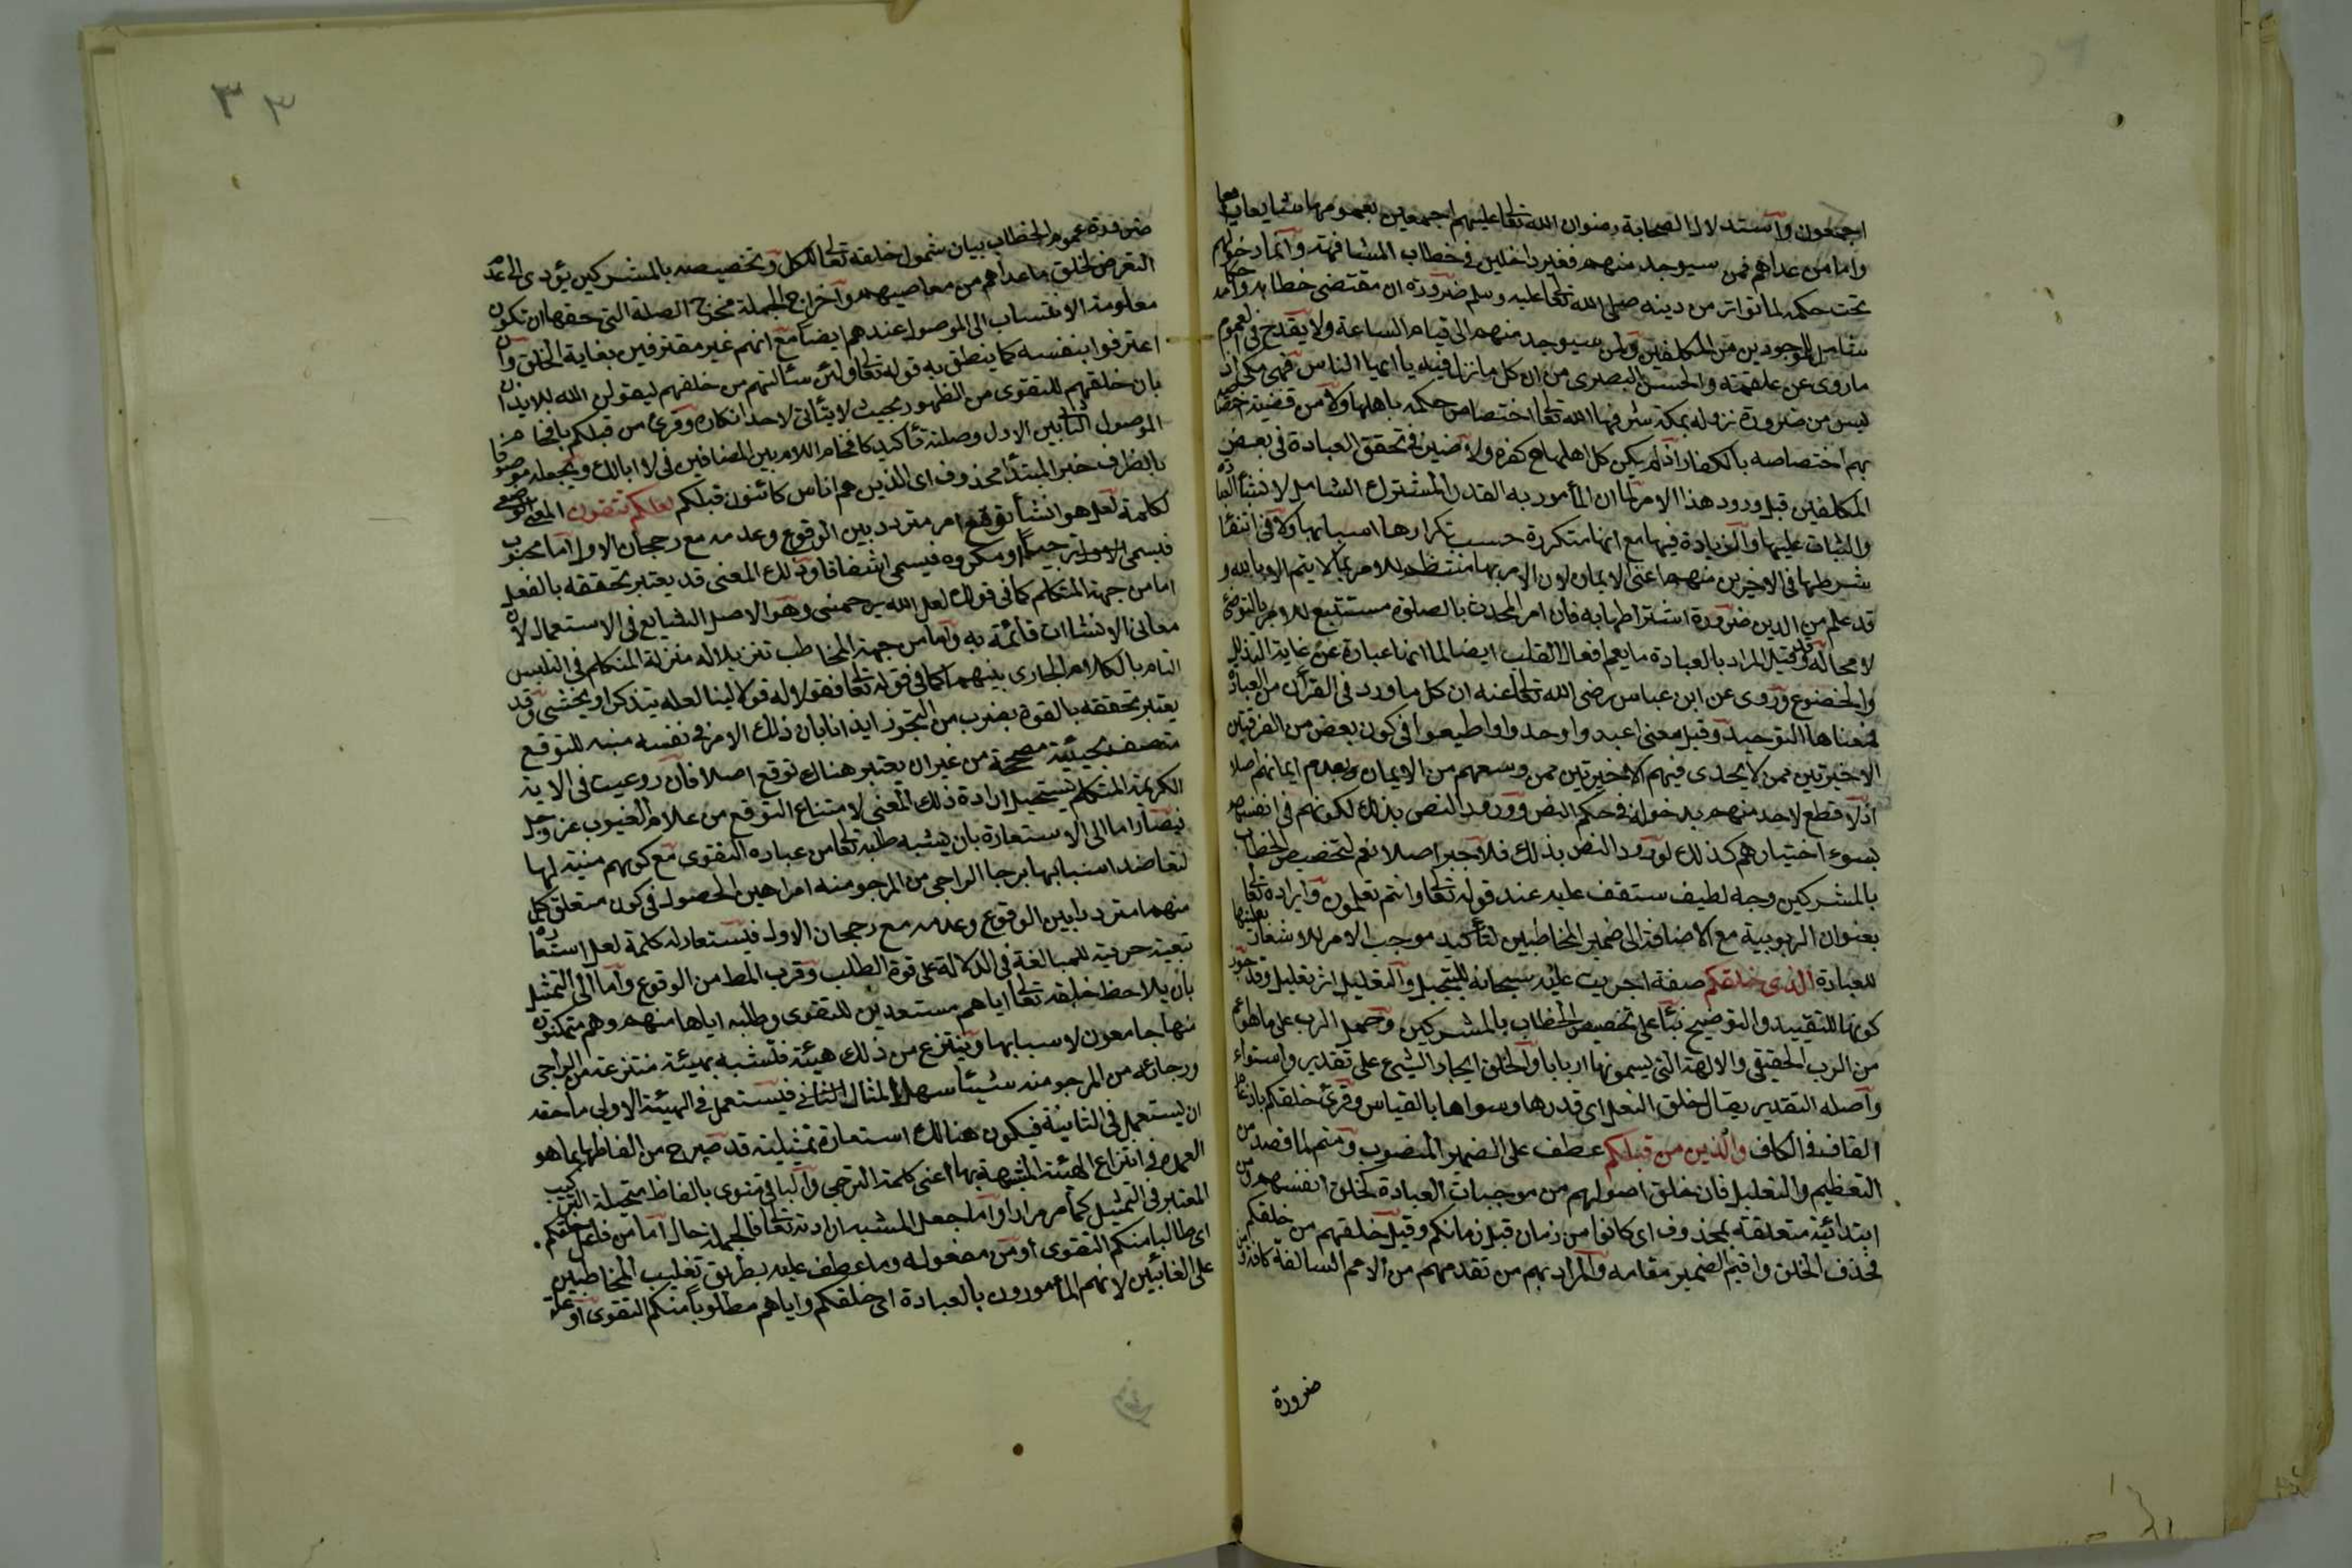 اجمعون واستدلال الصحابة رضوان الله تعالى عليهم اجمعين بعمومها شايعا
واما من عداهم ممن سيوجد منهم فغير داخلين في خطاب المشافهة وانما دخولهم
تحت حكمه لما تواتر من دينه صلى الله تعالى عليه وسلم ضرورة ان مقتضى خطابه واحكامه
شامل للموجودين من المكلفين ولمن سيوجد منهم الى قيام الساعة ولا يقدح في العموم
ما روى عن علقمة والحسن البصرى من ان كل ما نزل فيه يا ايها الناس فمكى اذ
ليس من ضرورة نزوله بمكة شرفها الله تعالى اختصاص حكمه باهلها ولا من قضية اختصاصه
بهم اختصاصه بالكفار اذ لم يكن كل اهلها ح كفرة ولا ضير في تحقق العبادة في بعض
المكلفين قبل ورود هذا الامر لما ان المأمور به القدر المشترك الشامل لانشاء العبادة
والثبات عليها والزيادة فيها مع انها متكررة حسب تكرارها اسبابها ولا في انتفاء
شرطها في الاخيرين منهم اعنى الايمان لان الامر بها منتظم للامر بما لا يتم الا به و
قد علم من الدين ضرورة اشتراطها به فان امر المحدث بالصلوة مستتبع للامر بالتوضى
لا محالة وقد قيل المراد بالعبادة ما يعم افعال القلب ايضا لما انها عبارة عن غاية التذلل
والخضوع وروى عن ابن عباس رضى الله تعالى عنه ان كل ما ورد في القرآن من العبادة
فمعناها التوحيد وقيل معنى اعبدوا وحدوا واطيعوا في كون بعض من الفرقتين
الاخيرتين ممن لا يجدى فيهم الاخيرتين ممن وسعهم من الايمان وبعدم ايمانهم اصلا
اذ لا قطع لاحد منهم بدخوله في حكم النص وورود النص بذلك لكونهم في انفسهم
بسوء اختيارهم كذلك لورود النص بذلك فلا جبر اصلا نعم لتخصيص الخطاب
بالمشركين وجه لطيف ستقف عليه عند قوله تعالى وانتم تعلمون وايراده تعالى
بعنوان الربوبية مع الاضافة الى ضمير المخاطبين لتأكيد موجب الامر للاشعار بعليتها
للعبادة الذى خلقكم صفة اجريت عليه سبحانه للتبجيل والتعليل اثر تعليل وقد جوز
كونها للتقييد والتوضيح بناء على تخصيص الخطاب بالمشركين وحمل الرب على ما هو اعم
من الرب الحقيقى والالهة التى يسمونها اربابا والخلق ايجاد الشئ على تقدير واستواء
واصله التقدير يقال خلق النعل اى قدرها وسواها بالقياس وقرئ خلقكم بادغام
القاف في الكاف والذين من قبلكم عطف على الضمير المنصوب ومتمم لما قصد من
التعظيم والتعليل فان خلق اصولهم من موجبات العبادة كخلق انفسهم ومن
ابتدائية متعلقة بمحذوف اى كانوا من زمان قبل زمانكم وقيل خلقهم من خلقكم
فحذف الخلق واقيم الضمير مقامه والمراد بهم من تقدمهم من الامم السالفة كافة ومن
ضرورة
٣٣
ضرورة عموم الخطاب بيان شمول خلقه تعالى للكل وتخصيصه بالمشركين يؤدى الى عدم
التعرض لخلق ما عداهم من معاصيهم واخراج الجملة مخرج الصلة التى حقها ان تكون
معلومة الانتساب الى الموصول عندهم ايضا مع انهم غير معترفين بغاية الخلق وان
اعترفوا بنفسه كما ينطق به قوله تعالى ولئن سألتهم من خلقهم ليقولن الله للايذان
بان خلقهم للتقوى من الظهور بحيث لا يتأتى لاحد انكاره وقرئ من قبلكم باقحام
الموصول الثانى بين الاول وصلته تأكيدا كاقحام اللام بين المضافين في لا ابالك وبجعله موصوفا
بالظرف خبر المبتدأ محذوف اى الذين هم اناس كائنون قبلكم لعلكم تتقون المعنى الوضعى
لكلمة لعل هو انشاء توقع امر متردد بين الوقوع وعدمه مع رجحان الاول اما محبوب
فيسمى ترجيا او مكروه فيسمى اشفاقا وذلك المعنى قد يعتبر تحققه بالفعل
اما من جهة المتكلم كما في قولك لعل الله يرحمنى وهو الاصل الشايع في الاستعمال لان
معانى الانشاات قائمة به واما من جهة المخاطب تنزيلا له منزلة المتكلم في التلبس
التام بالكلام الجارى بينهما كما في قوله تعالى فقولا له قولا لينا لعله يتذكر او يخشى وقد
يعتبر تحققه بالقوة بضرب من التجوز ايذانا بان ذلك الامر في نفسه مئنة للتوقع
متصف بحيثية مصححة من غير ان يعتبر هناك توقع اصلا فان روعيت في الاية
الكريمة المتكلم يستحيل ارادة ذلك المعنى لامتناع التوقع من علام الغيوب عز وجل
فيصار اما الى الاستعارة بان يشبه طلبه تعالى من عباده التقوى مع كونهم مئنة لها
لتعاضد اسبابها برجاء الراجى من المرجو منه امرا هين الحصول في كون متعلق كل
منهما مترددا بين الوقوع وعدمه مع رجحان الاول فيستعار له كلمة لعل استعارة
تبعية حرفية للمبالغة في الدلالة على قوة الطلب وقرب المط من الوقوع واما الى التمثيل
بان يلاحظ خلقه تعالى اياهم مستعدين للتقوى وطلبه اياها منهم وهم متمكنون
منها جامعون لاسبابها وينتزع من ذلك هيئة فتشبه بهيئة منتزعة من الراجى
ورجائه من المرجو منه شيئا سهل المنال فيستعمل في الهيئة الاولى ما حقه
ان يستعمل في الثانية فيكون هنالك استعارة تمثيلية قد صرح من الفاظها بما هو
العمدة في انتزاع الهيئة المشبهة بها اعنى كلمة الترجى والباقى منوى بالفاظ متخيلة التركيب
المعتبر في التمثيل كما مر مرارا واما جعل المشبه ارادته تعالى فالجملة حال اما من فاعل خلقكم
اى طالبا منكم التقوى او من مفعوله وما عطف عليه بطريق تغليب المخاطبين
على الغائبين لانهم المأمورون بالعبادة اى خلقكم واياهم مطلوبا منكم التقوى او علة